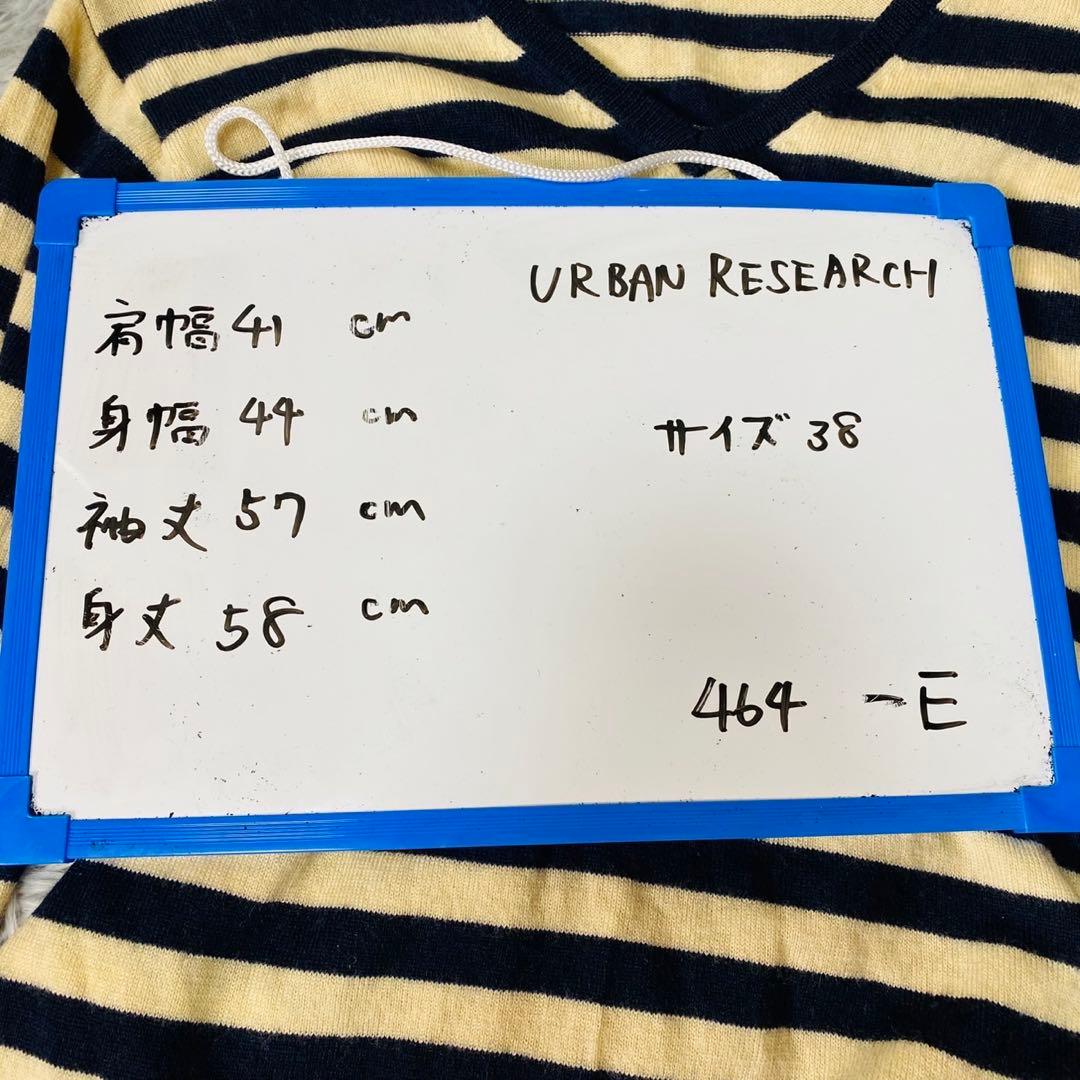 URBAN RESEARCH
肩幅 41 cm
身幅 44 cm
サイズ 38
袖丈 57 cm
身丈 58 cm
464 -E